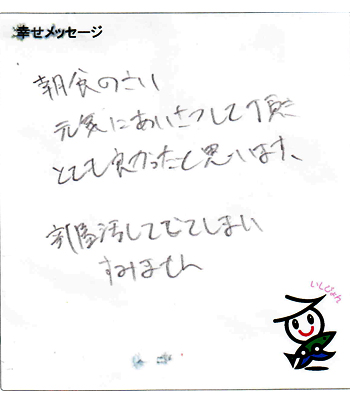 幸せメッセージ
朝食のさい
元気にあいさつして頂き
とても良かったと思います、
部屋汚してでてしまい
すみません
いしぴょん